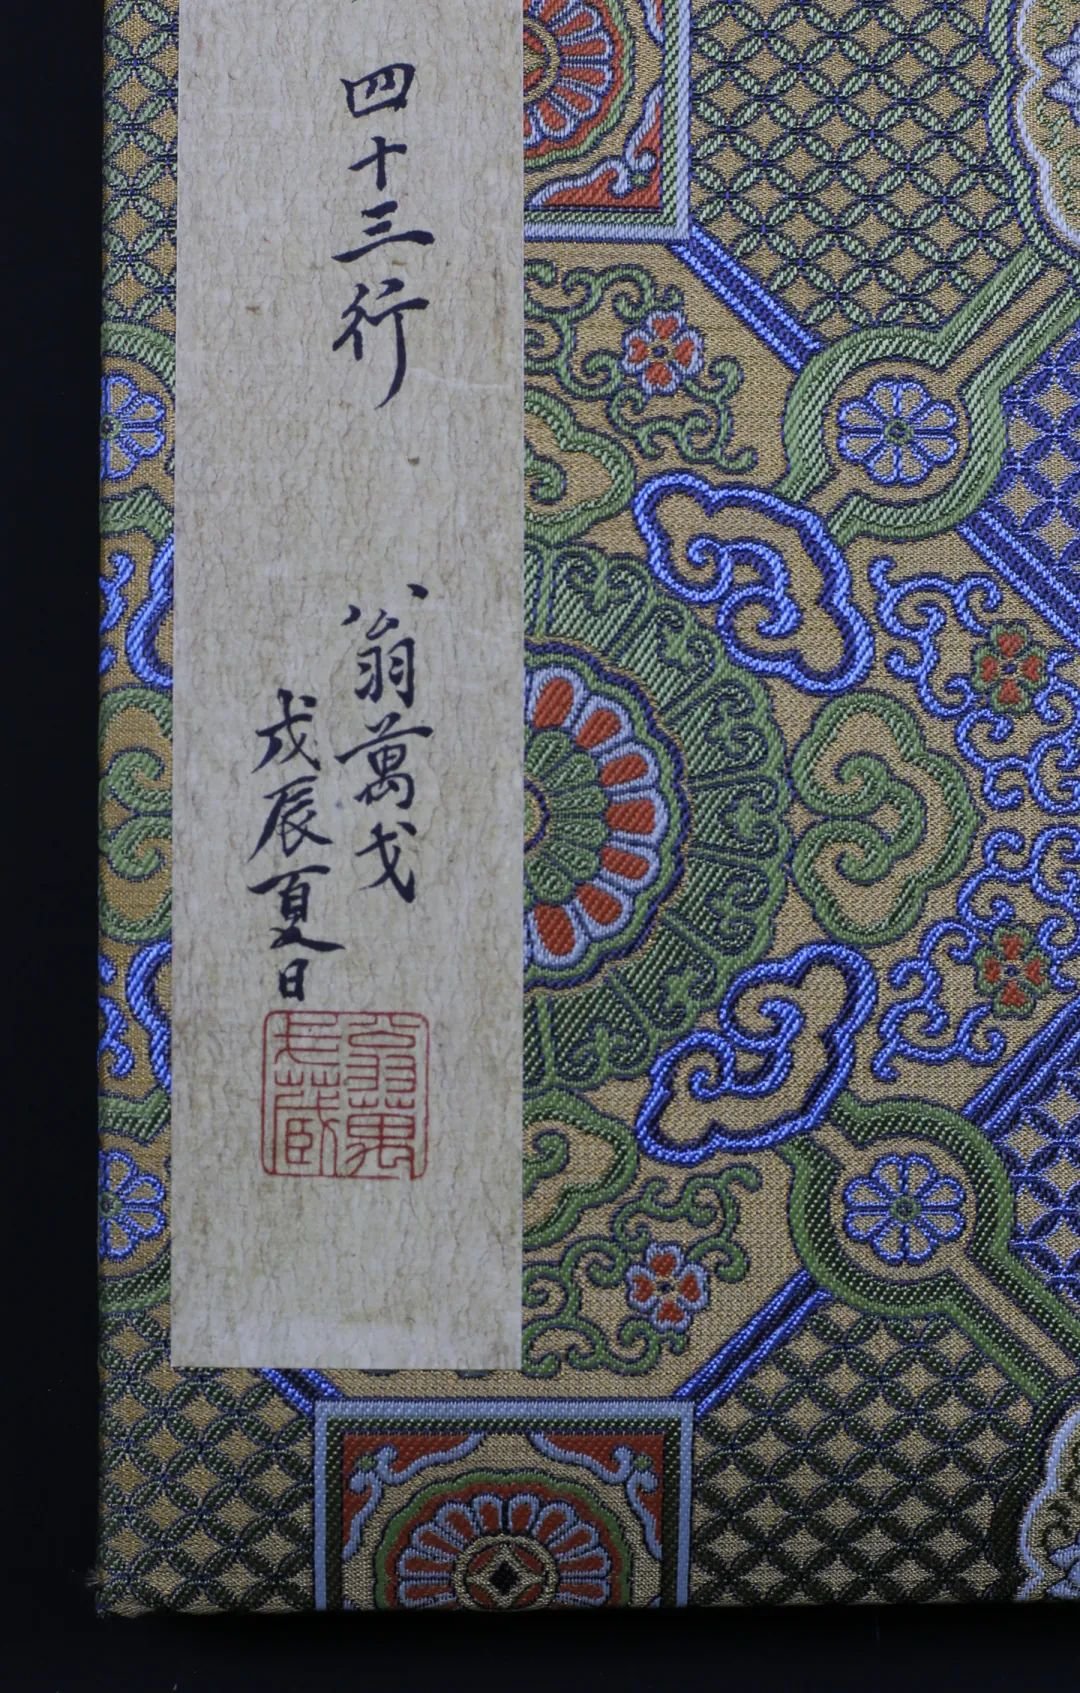 四十三行 翁萬戈
戊辰夏日
翁萬
戈藏